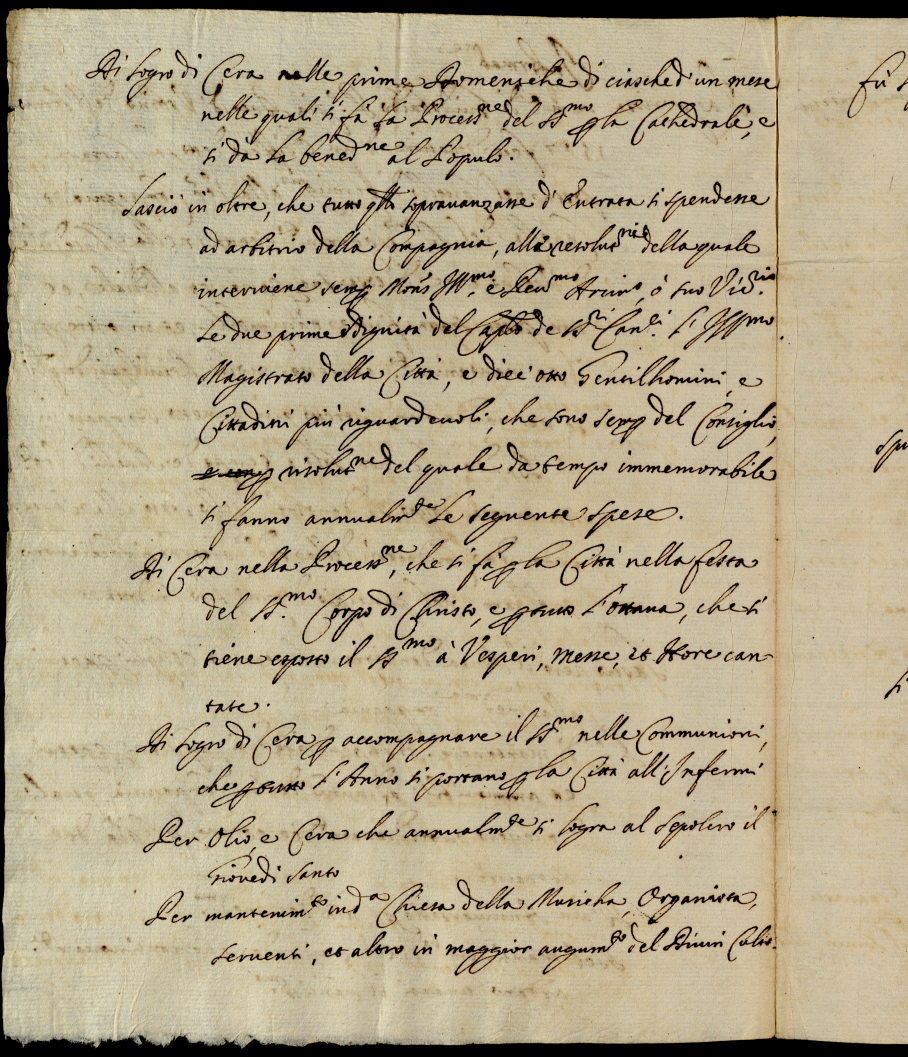 Di logro di Cera nelle prime Domeniche di ciasched'un mese
nelle quali si fà la Process.ne del SS.mo p la Cathedrale, e
si dà la bened.ne al Populo.
Lasciò in oltre, che tutto qllo sopravanzasse d'Entrata si spendesse
ad arbitrio della Compagnia, alla resolut.ne della quale
interviene semp Mons.r Ill.mo, e Rev.mo Arciv.o, ò suo Vic.rio
Le due prime dignità del Caplo de SS.ri Can.ci L'Ill.mo
Magistrato della Città, e dieci otto Gentilhomini, e
Cittadini più riguardevoli, che sono semp del Consiglio,
risolut.ne del quale da tempo immemorabile
si fanno annualm.te le seguente spese.
Di Cera nella Process.ne, che si fà p la Città nella festa
del SS.mo Corpo di Christo, e p tutto l'ottava, che si
tiene esposto il SS.mo à Vesperi, messe, et Hore can-
tate.
Di logro di Cera p accompagnare il SS.mo nelle Communioni,
che p tutto l'Anno si portano p la Città all'Infermi
Per Olio, e Cera che annualm.te si logra al sepolcro il
Giovedi Santo
Per mantenim.to in d.a Chiesa della Musicha, Organista,
serventi, et altro in maggior augum.to del Divin Culto.
fù
spe
si